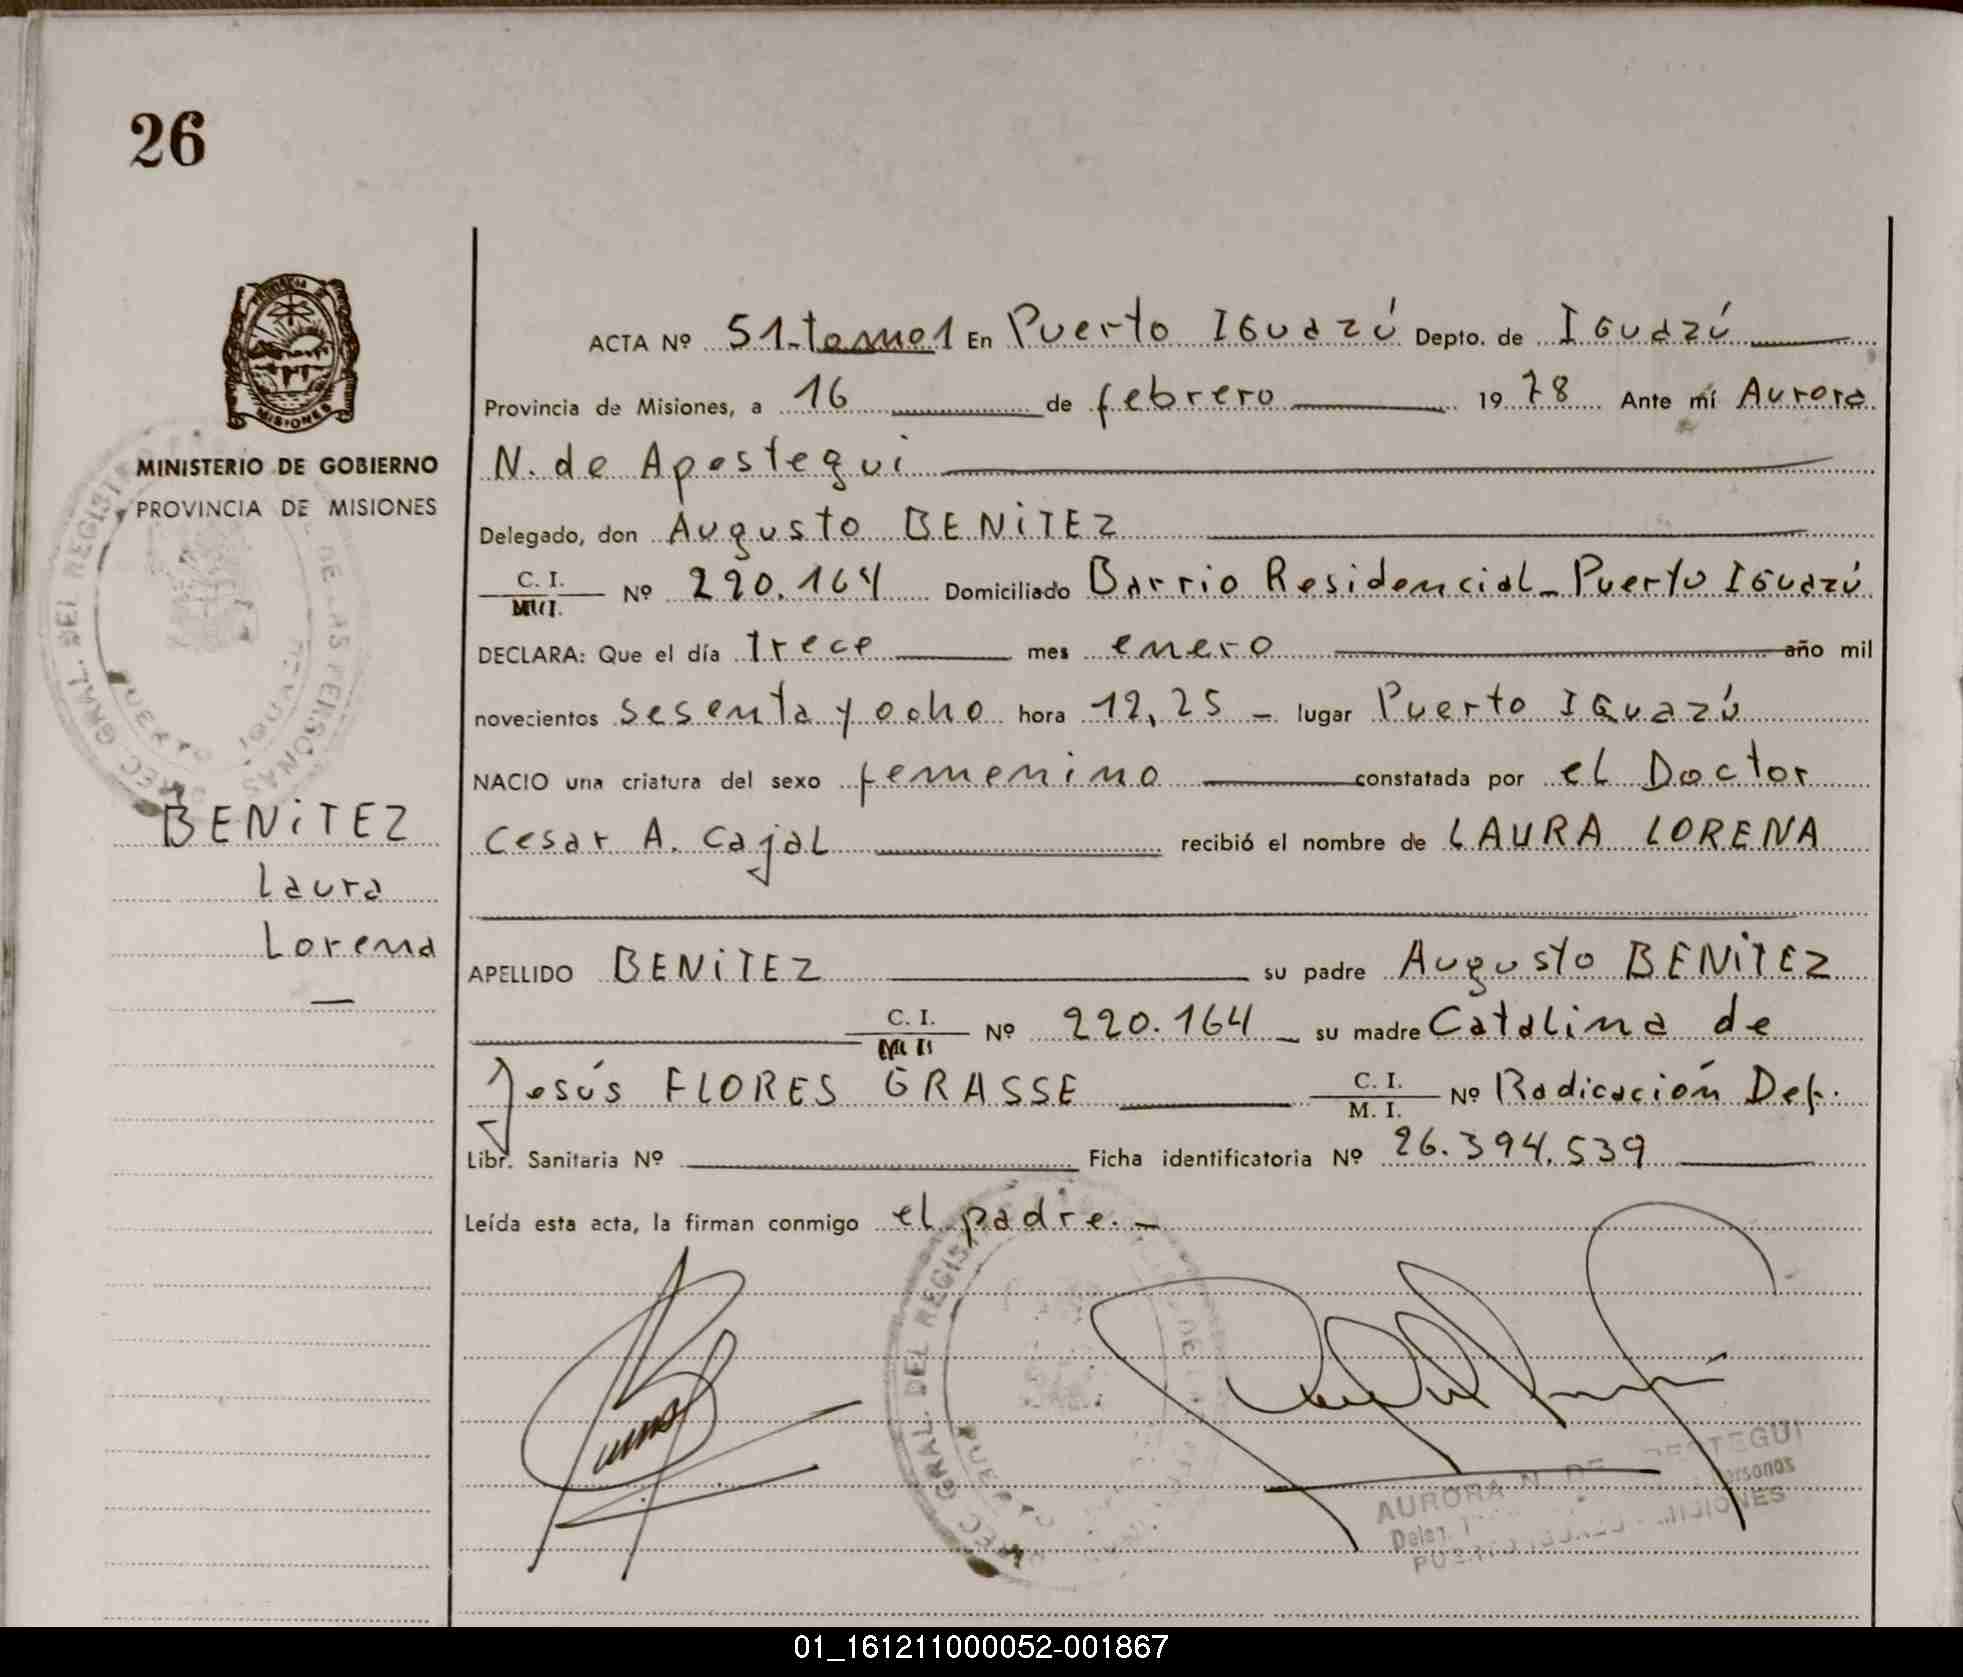 26
ACTA Nº 51-tomo1 En Puerto Iguazú Depto. de Iguazú
Provincia de Misiones, a 16 de febrero 1978 Ante mí Aurora
N. de Apostegui
Delegado, don Augusto BENITEZ
C. I. Nº 220.164 Domiciliado Barrio Residencial - Puerto Iguazú
M. I.
DECLARA: Que el día trece mes enero año mil
novecientos sesenta y ocho hora 12,25 - lugar Puerto Iguazú
NACIO una criatura del sexo femenino constatada por el Doctor
Cesar A. Cajal recibió el nombre de LAURA LORENA
APELLIDO BENITEZ su padre Augusto BENITEZ
C. I. Nº 220.164 - su madre Catalina de
Jesús FLORES GRASSE C. I. Nº Radicación Def.
M. I.
Libr. Sanitaria Nº Ficha identificatoria Nº 26.394.539
Leída esta acta, la firman conmigo el padre. -
PROVINCIA DE MISIONES
MINISTERIO DE GOBIERNO
PROVINCIA DE MISIONES
BENITEZ
Laura
Lorena
DEL REGIS
GRAL.
DE LAS PERSONAS
PUERTO
GRAL. DEL REGIS
AURORA N. DE
MISIONES
01_161211000052-001867